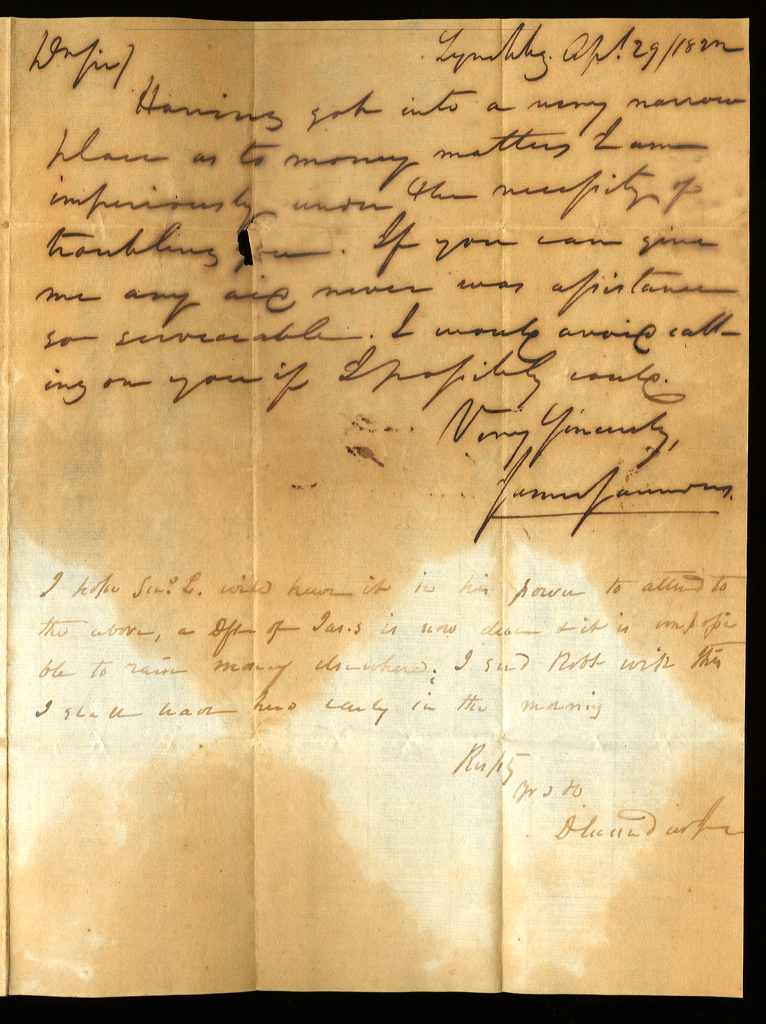 Dr Sir,
Lynchbg. Apl. 29/1822
Having got into a very narrow
place as to money matters I am
imperiously under the necessity of
troubling you. If you can give
me any aid never was assistance
so serviceable. I would avoid call-
ing on you if I possibly could.
Very Sincerely,
James Saunders.
I hope will have it in his power to attend to
the above, a Dft of Jas. S is now due & it is impossi
ble to raise money elsewhere. I send Robt with this
I shall leave here early in the morning
Respty